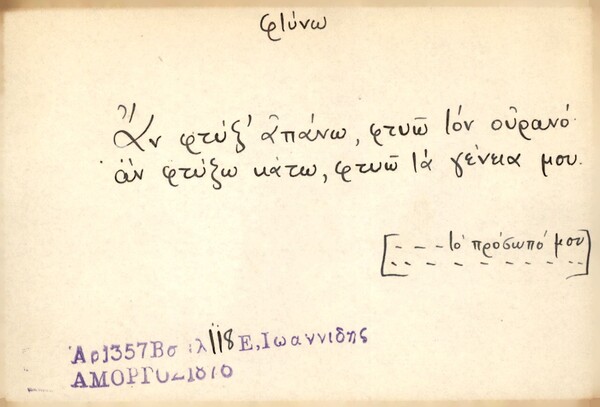 φτύνω
Ἄν φτύξ' ἀπάνω, φτυῶ τόν οὐρανό·
ἄν φτύξω κάτω, φτυῶ τά γένεια μου.
[- - - - τό πρόσωπό μου
- - - - - - - - - -]
Ἀρ 1357 Βσ λ 118 Ε. Ιωαννιδης
ΑΜΟΡΓΟΣ 1876